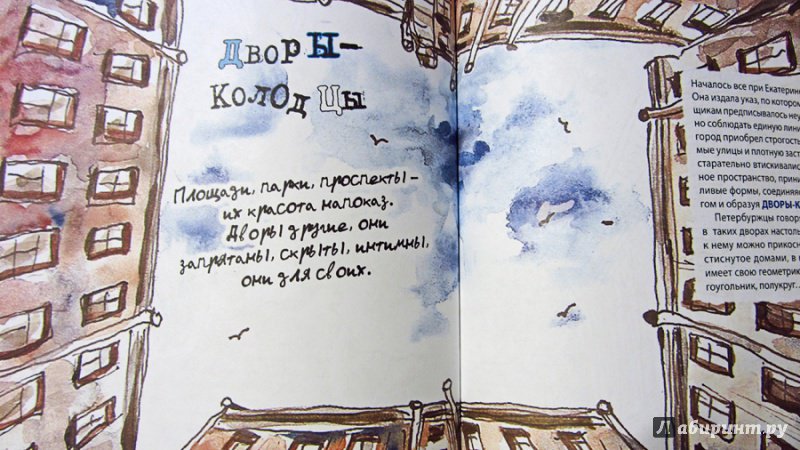 Дворы-
колодцы
Площади, парки, проспекты -
их красота напоказ.
Дворы другие, они
запрятаны, скрыты, интимны,
они для своих.
Началось все при Екатерин
Она издала указ, по котором
щикам предписывалось неу
но соблюдать единую лини
город приобрел строгость
мые улицы и плотную заст
старательно втискивалис
ное пространство, прин
ливые формы, соединяя
гом и образуя ДВОРЫ-К
Петербуржцы говор
в таких дворах настоль
к нему можно прикосн
стиснутое домами, в
имеет свою геометрик
гоугольник, полукруг...
Лабиринт.ру